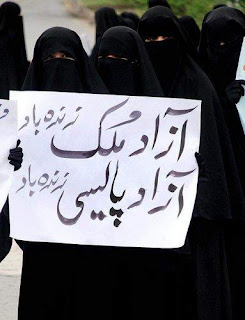 آزاد ملک زندہ باد
آزاد پالیسی زندہ باد